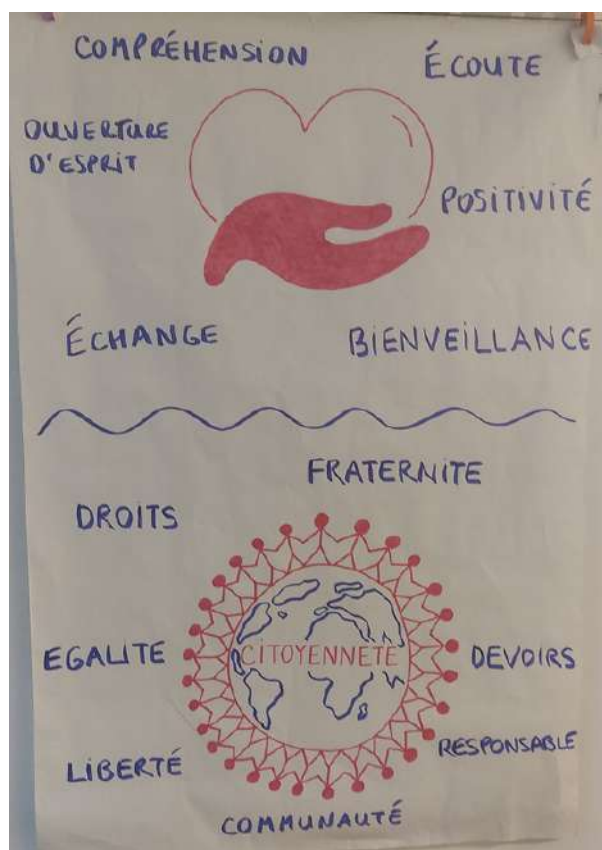 COMPRÉHENSiON
ÉCOUTE
OUVERTURE
D'ESPRiT
POSiTiViTÉ
ÉCHANGE
BiENVEiLLANCE
FRATERNiTE
DROITS
CITOYENNETE
EGALiTE
DEVOIRS
LiBERTÉ
RESPONSABLE
COMMUNAUTÉ